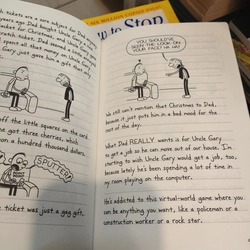 ratch tickets are a sore subject for Dad.
years ago Dad bought Uncle Gary
spent all that money on Uncle
Gary just gave him a gift that only
off the little squares on the card
got three cherries, which
on a hundred thousand dollars.
SPUTTER!
ticket was just a gag gift.
SIX MILLION
How to Stop
YOU SHOULD'VE
SEEN THE LOOK ON
YOUR FACE! HA HA!
We still can't mention that Christmas to Dad,
because it just puts him in a bad mood for the
rest of the day.
What Dad REALLY wants is for Uncle Gary
to get a job so he can move out of our house. I'm
starting to wish Uncle Gary would get a job, too,
because lately he's been spending a lot of time in
my room playing on the computer.
He's addicted to this virtual-world game where you
can be anything you want, like a policeman or a
construction worker or a rock star.